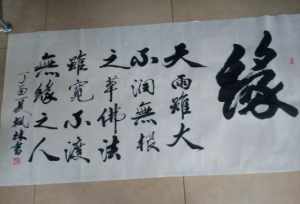 緣
天雨雖大
不潤無根
之草佛法
雖寬不渡
無緣之人
丁酉夏楓林書